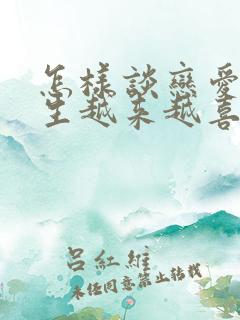 怎樣談戀愛
生越来越喜
呂紅維
未经同意禁止转载